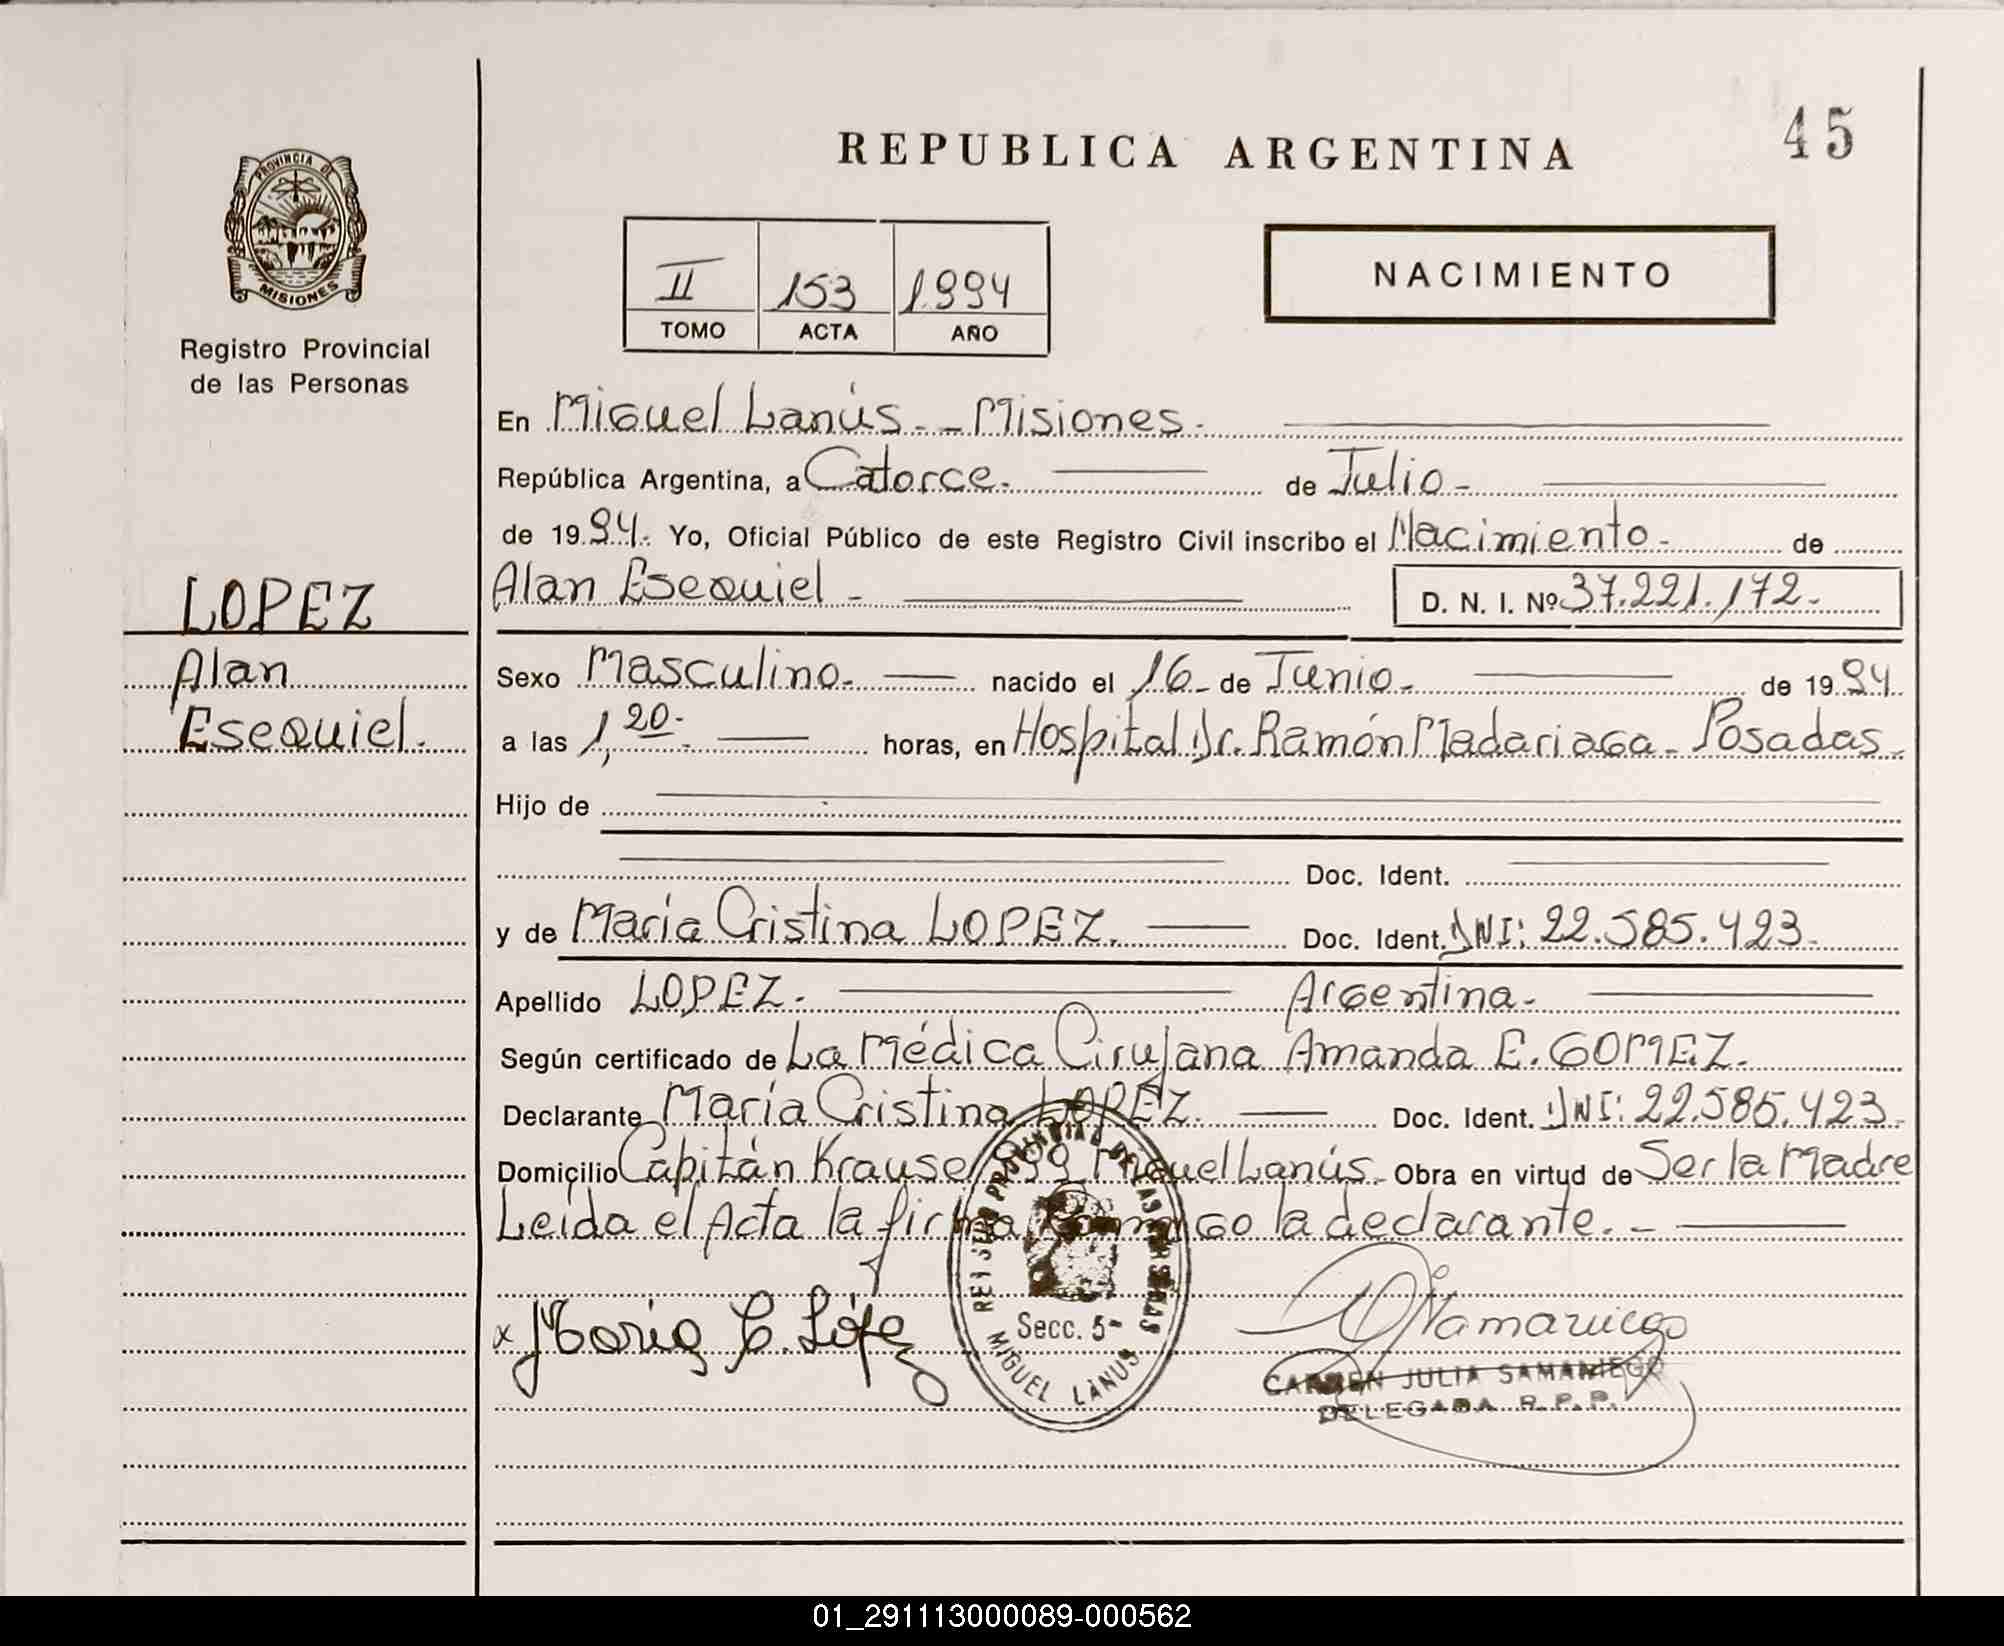 REPUBLICA ARGENTINA
45
PROVINCIA DE
MISIONES
Registro Provincial
de las Personas
II 153 1.994
TOMO ACTA AÑO
NACIMIENTO
En Miguel Lanús.- Misiones.
República Argentina, a Catorce. de Julio.
de 1994. Yo, Oficial Público de este Registro Civil inscribo el Nacimiento. de
Alan Esequiel. D. N. I. Nº 37.221.172.
LOPEZ
Alan
Esequiel.
Sexo Masculino. nacido el 16 de Junio. de 1994.
a las 1,20. horas, en Hospital Dr. Ramón Madariaga. Posadas.
Hijo de
Doc. Ident.
y de María Cristina LOPEZ. Doc. Ident. DNI: 22.585.423.
Apellido LOPEZ. Argentina.
Según certificado de La Médica Cirujana Amanda E. GOMEZ.
Declarante María Cristina LOPEZ. Doc. Ident. DNI: 22.585.423.
Domicilio Capitán Krause Miguel Lanús. Obra en virtud de Ser la Madre
Leída el Acta la firma conmigo la declarante.
REGISTRO PROVINCIAL DE LAS PERSONAS
Secc. 5ª
MIGUEL LANUS
x Maria C. López
Samaniego
CARMEN JULIA SAMANIEGO
DELEGADA R.P.P.
01_291113000089-000562